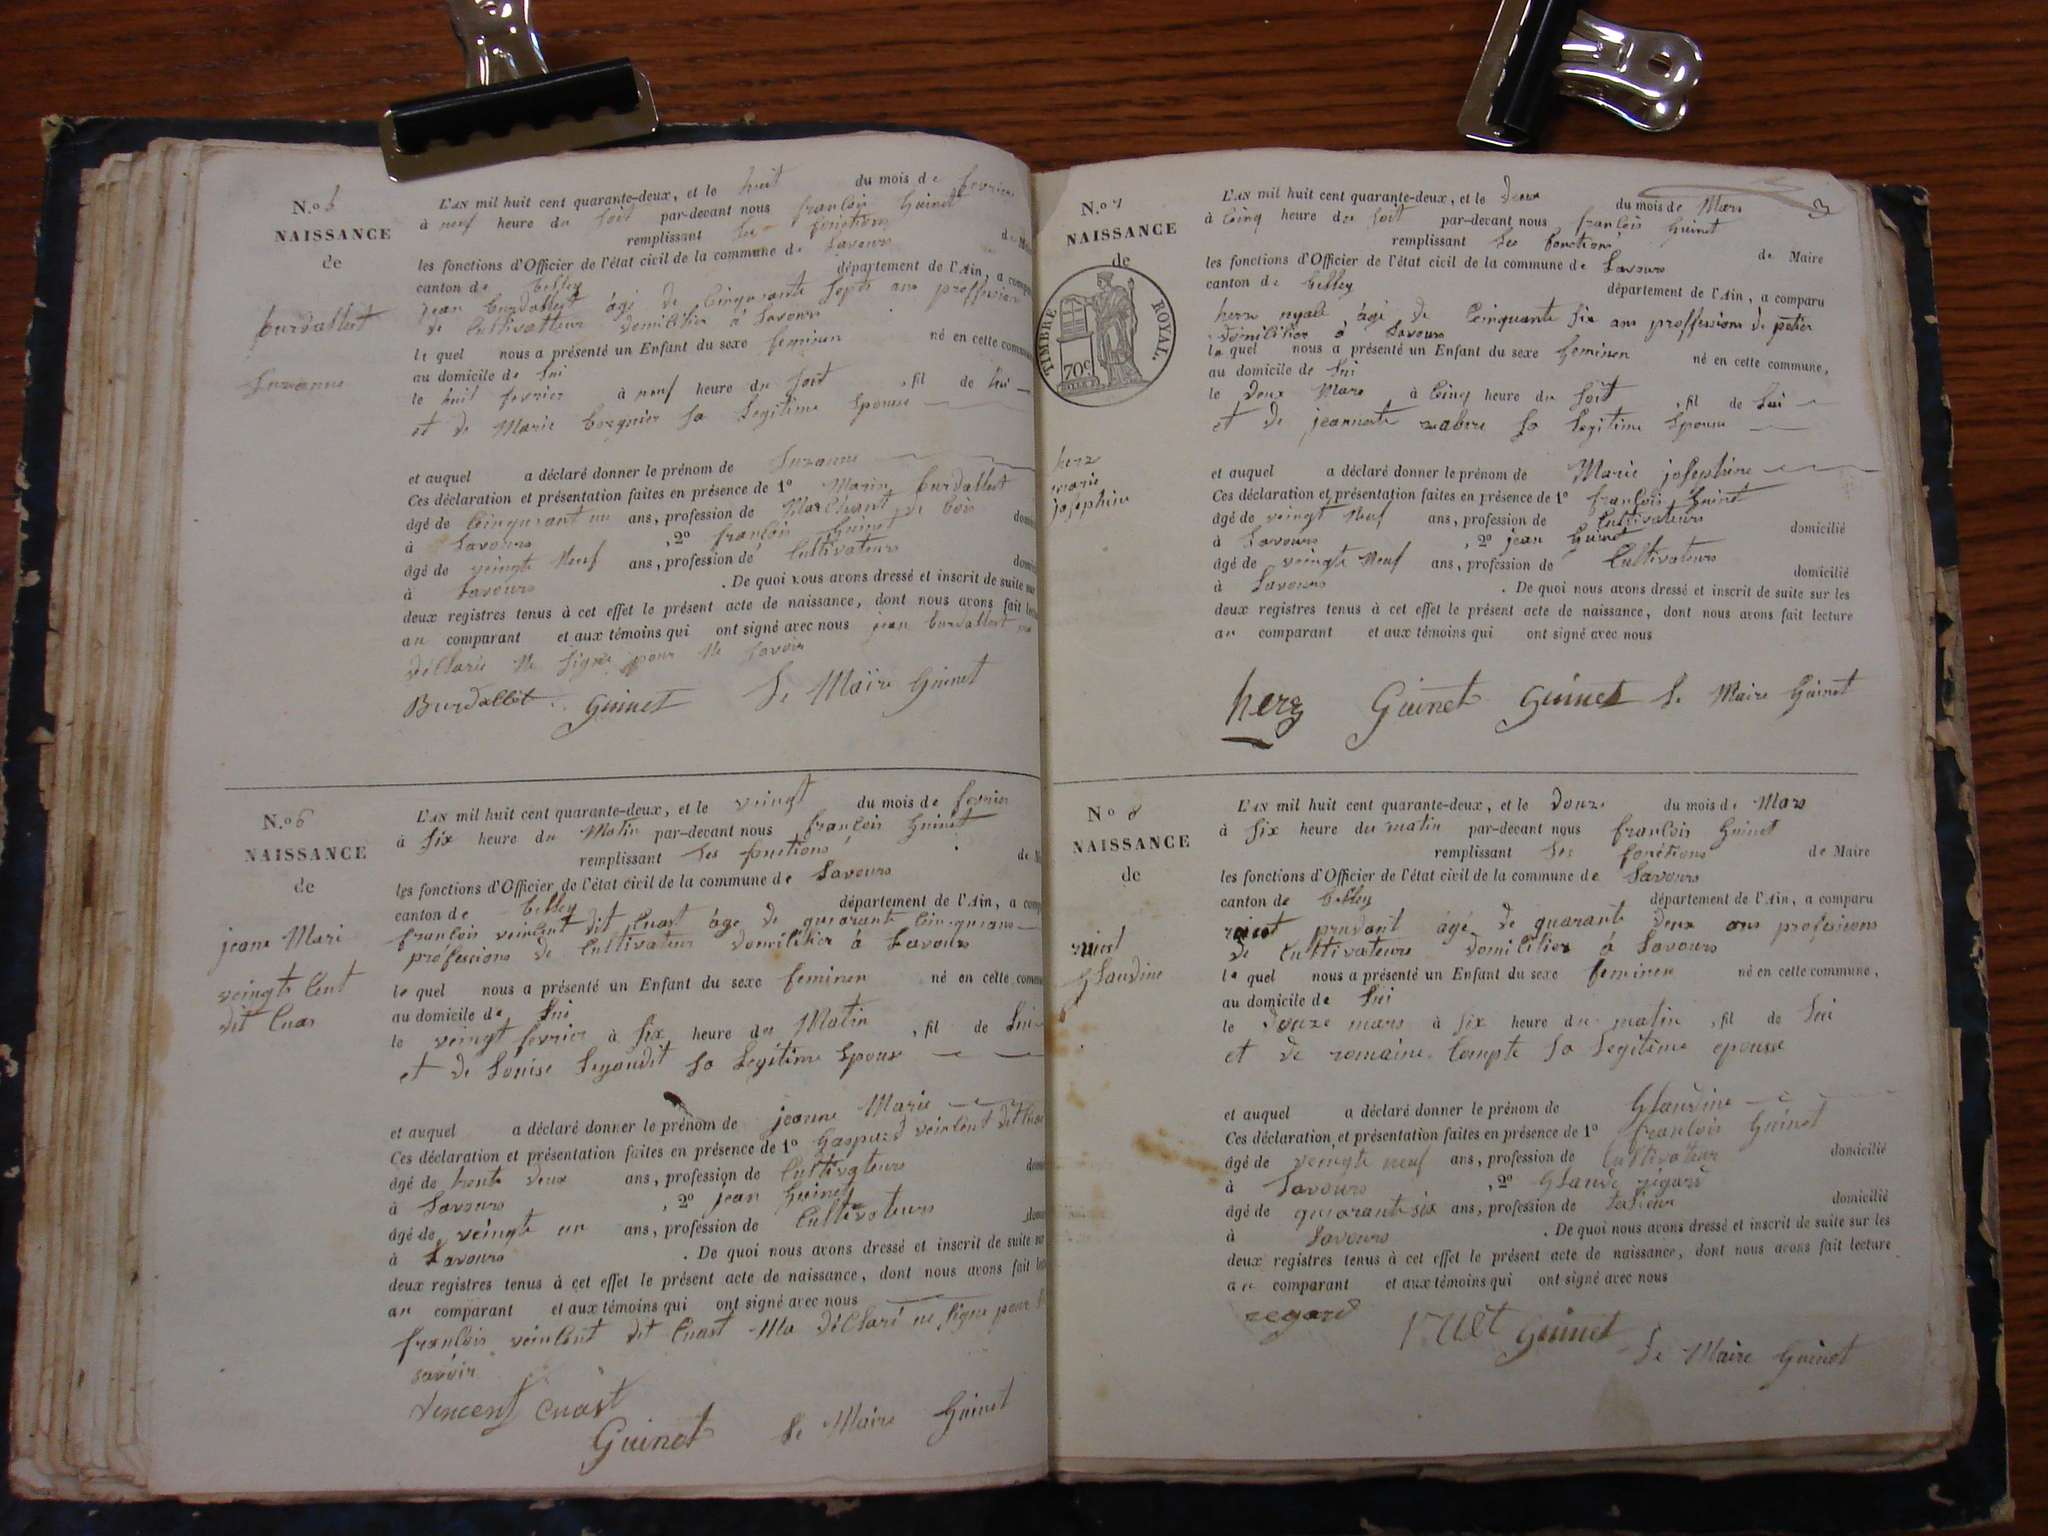 N.o 5
NAISSANCE
de
burdallest
Suzanne
L'AN mil huit cent quarante-deux, et le huit du mois de fevrier
à neuf heure du Soit par-devant nous françois Guinet
remplissant les fonctions de
les fonctions d'Officier de l'état civil de la commune de Savours
canton de belley département de l'Ain, a comparu
jean burdallest âgé de Cinquante Septs ans proffession
de Cultivatteur domicilier à Savours
le quel nous a présenté un Enfant du sexe feminen né en cette commune
au domicile de lui
le huit fevrier à neuf heure du Soit , fil de lui
et de Marie borgnier Sa Legitime Epouse
et auquel a déclaré donner le prénom de Suzanne
Ces déclaration et présentation faites en présence de 1º Marin burdallest
âgé de Cinquant un ans, profession de Marchant de bois
à Savours , 2º françois Guinet
âgé de veingte Neuf ans, profession de Cultivateurs
à Savours . De quoi nous avons dressé et inscrit de suite sur
deux registres tenus à cet effet le présent acte de naissance, dont nous avons fait
au comparant et aux témoins qui ont signé avec nous jean burdallest
déclarie Ne Signé pour Ne Savoir
Burdallet Guinet Le Maire Guinet
N.o 6
NAISSANCE
de
jeane Mari
veingte Cent
dit Cuas
L'AN mil huit cent quarante-deux, et le veingt du mois de fevrier
à Six heure du Matin par-devant nous françois Guinet
remplissant les fonctions de
les fonctions d'Officier de l'état civil de la commune de Savours
canton de belley département de l'Ain, a
françois veincent dit Cuast âge de quarante Cinq ans
professions de Cultivateur domicilier à Savours
le quel nous a présenté un Enfant du sexe feminen né en cette
au domicile de lui
le veingt fevrier à Six heure du Matin , fil de lui
et de Louise Sa Legitime Epouse
et auquel a déclaré donner le prénom de jeanne Marie
Ces déclaration et présentation faites en présence de 1º Gaspard veincent dit
âgé de trente deux ans, profession de Cultivateurs
à Savours , 2º jean Guinet
âgé de veingte un ans, profession de Cultivateurs
à Savours . De quoi nous avons dressé et inscrit de suite sur
deux registres tenus à cet effet le présent acte de naissance, dont nous avons fait
au comparant et aux témoins qui ont signé avec nous
françois veincent dit Cuast Ma déclaré ne Signe pour
savoir
Vencent Cuast
Guinet Le Maire Guinet
3
N.o 7
NAISSANCE
de
TIMBRE ROYAL.
70c
herz
marie
josephine
L'AN mil huit cent quarante-deux, et le deux du mois de Mars
à Cinq heure du Soit par-devant nous françois Guinet
remplissant les fonctions de Maire
les fonctions d'Officier de l'état civil de la commune de Savours
canton de belley département de l'Ain, a comparu
herz âgé de Cinquante Six ans proffessions de potier
domicilier à Savours
le quel nous a présenté un Enfant du sexe feminen né en cette commune,
au domicile de lui
le deux Mars à Cinq heure du Soit , fil de lui
et de jeannete Sa Legitime Epouse
et auquel a déclaré donner le prénom de Marie josephine
Ces déclaration et présentation faites en présence de 1º françois Guinet
âgé de veingt Neuf ans, profession de Cultivateurs domicilié
à Savours , 2º jean Guinet
âgé de veingte Neuf ans, profession de Cultivateurs domicilié
à Savours . De quoi nous avons dressé et inscrit de suite sur les
deux registres tenus à cet effet le présent acte de naissance, dont nous avons fait lecture
au comparant et aux témoins qui ont signé avec nous
herz Guinet Guinet Le Maire Guinet
No 8
NAISSANCE
de
ruiest
Glaudine
L'AN mil huit cent quarante-deux, et le douze du mois de Mars
à Six heure du matin par-devant nous françois Guinet
remplissant les fonctions de Maire
les fonctions d'Officier de l'état civil de la commune de Savours
canton de belley département de l'Ain, a comparu
prudant âgé de quarante deux ans professions
de Cultivateurs domicilier à Savours
le quel nous a présenté un Enfant du sexe feminen né en cette commune,
au domicile de lui
le douze mars à Six heure du matin , fil de lui
et de romaine Compte Sa Legitime epouse
et auquel a déclaré donner le prénom de Glaudine
Ces déclaration et présentation faites en présence de 1º françois Guinet
âgé de veingte neuf ans, profession de Cultivateur domicilié
à Savours , 2º Glaude regard
âgé de quarante six ans, profession de domicilié
à Savours . De quoi nous avons dressé et inscrit de suite sur les
deux registres tenus à cet effet le présent acte de naissance, dont nous avons fait lecture
au comparant et aux témoins qui ont signé avec nous
regard ruet Guinet Le Maire Guinet